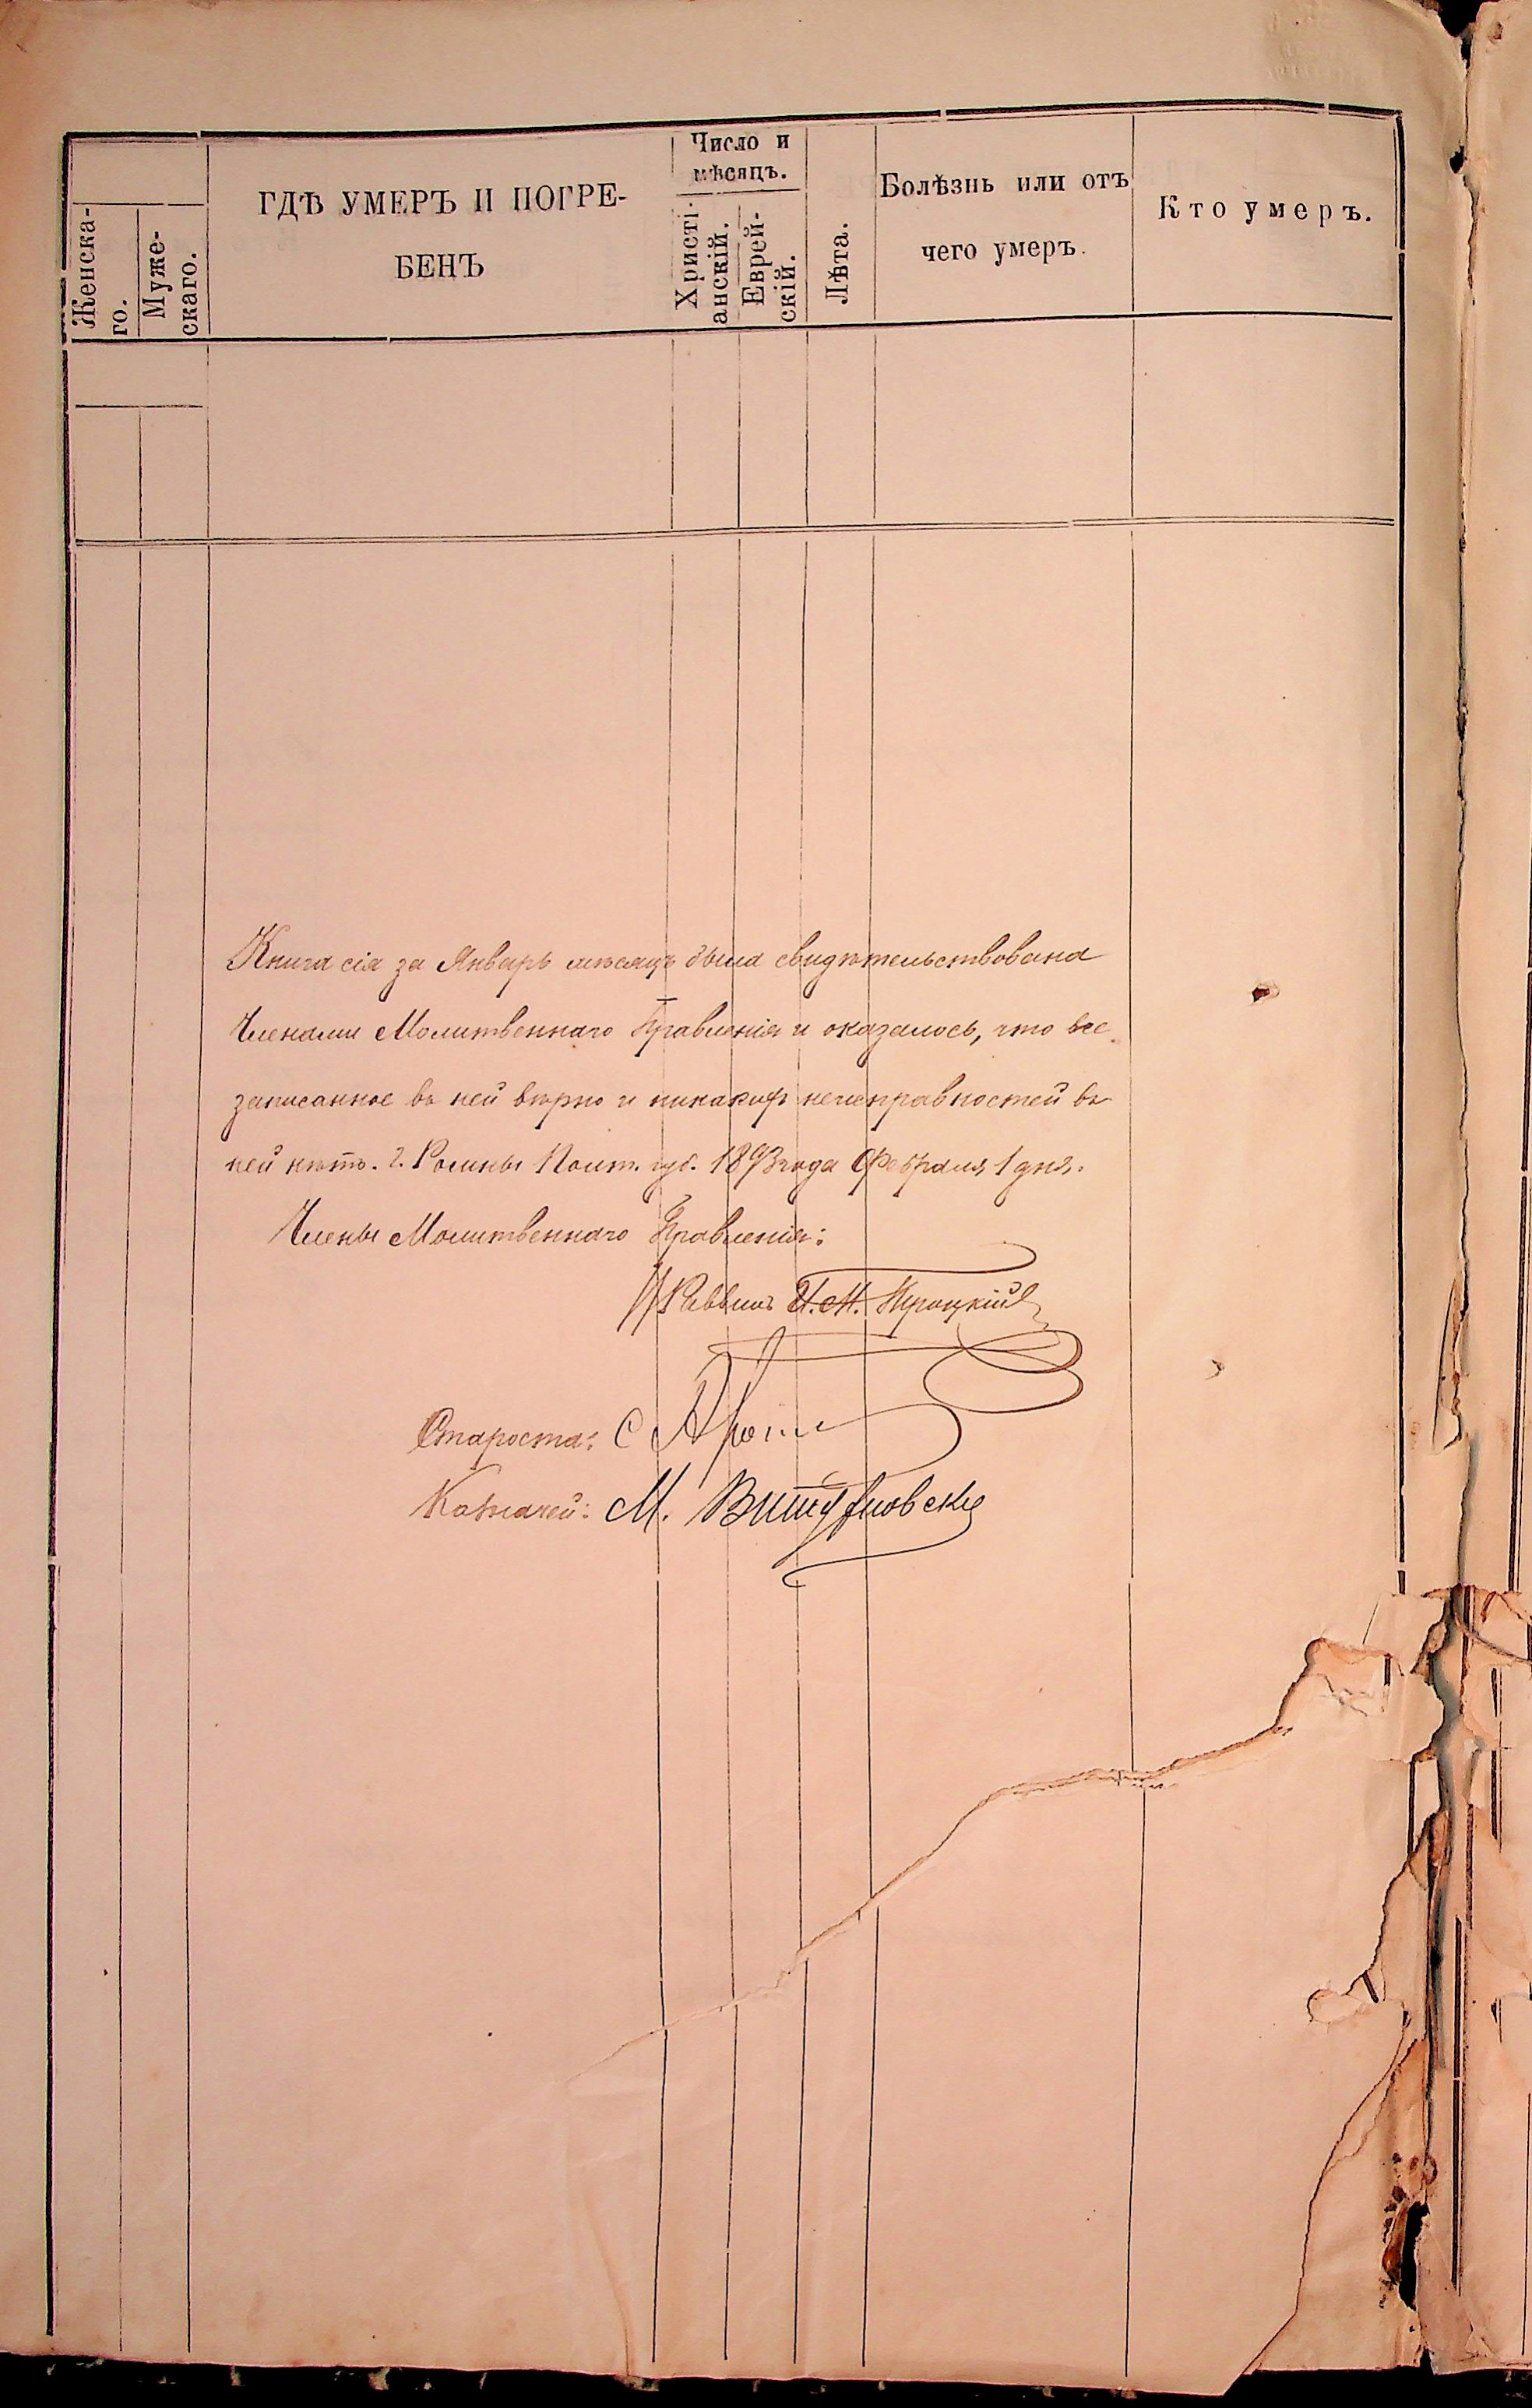 Число и
мѣсяцъ.
Женска-
го.
Муже-
скаго.
ГДѢ УМЕРЪ И ПОГРЕ-
БЕНЪ
Христі-
анскій.
Еврей-
скій.
Лѣта.
Болѣзнь или отъ
чего умеръ.
Кто умеръ.
Книга сія за Январь мѣсяцъ была свидѣтельствована
Членами Молитвеннаго Правленія и оказалось, что все
записанное въ ней вѣрно и никакихъ неисправностей въ
ней нѣтъ. г. Ромны Полт. губ. 1893 года Февраля 1 дня.
Члены Молитвеннаго Правленія:
Раввинъ И. М.
Староста: С
Казначей: М.